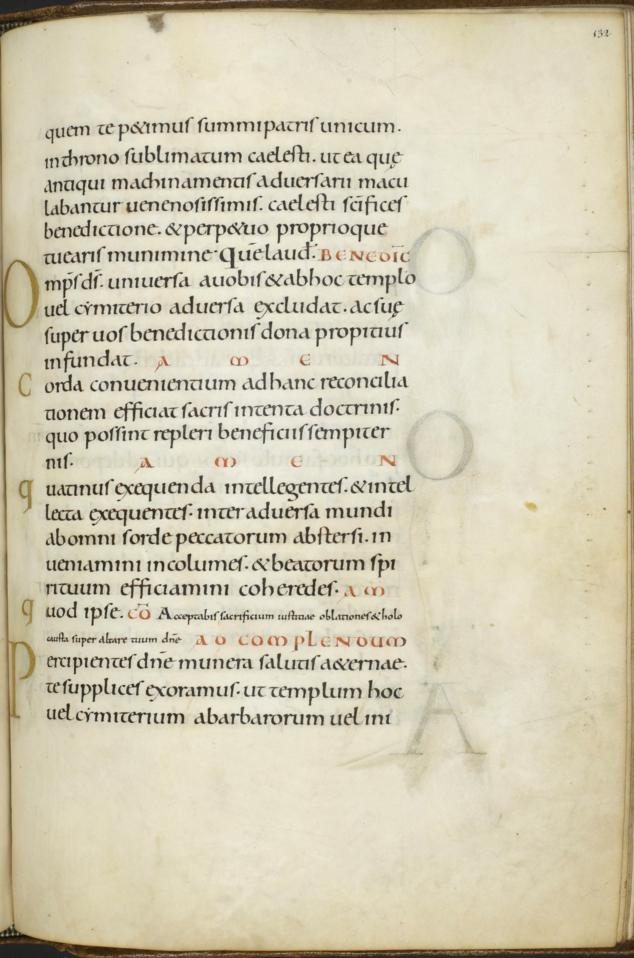 132
quem te p&imus summi patris unicum.
in throno sublimatum caelesti. ut ea quę
antiqui machinamentis adversarii macu
labantur venenosissimis. caelesti sc̄ifices
benedictione. & perp&uo proprioque
tuearis munimine. Quē laud. BENEDIC̄
Omp̄s ds̄. universa a vobis & ab hoc templo
vel cẏmiterio adversa excludat. ac suę
super vos benedictionis dona propitius
infundat. AMEN
Corda convenientium ad hanc reconcilia
tionem efficiat sacris intenta doctrinis.
quo possint repleri beneficiis sempiter
nis. AMEN
quatinus exequenda intellegentes. & intel
lecta exequentes. inter adversa mundi
ab omni sorde peccatorum abstersi. in
veniamini incolumes. & beatorum spi
rituum efficiamini coheredes. AM
quod ipse. CŌ Acceptabis sacrificium iustitiae oblationes & holo
causta super altare tuum dn̄e AD COMPLENDUM
Percipientes dn̄e munera salutis a&ernae.
te supplices exoramus. ut templum hoc
vel cẏmiterium a barbarorum vel ini